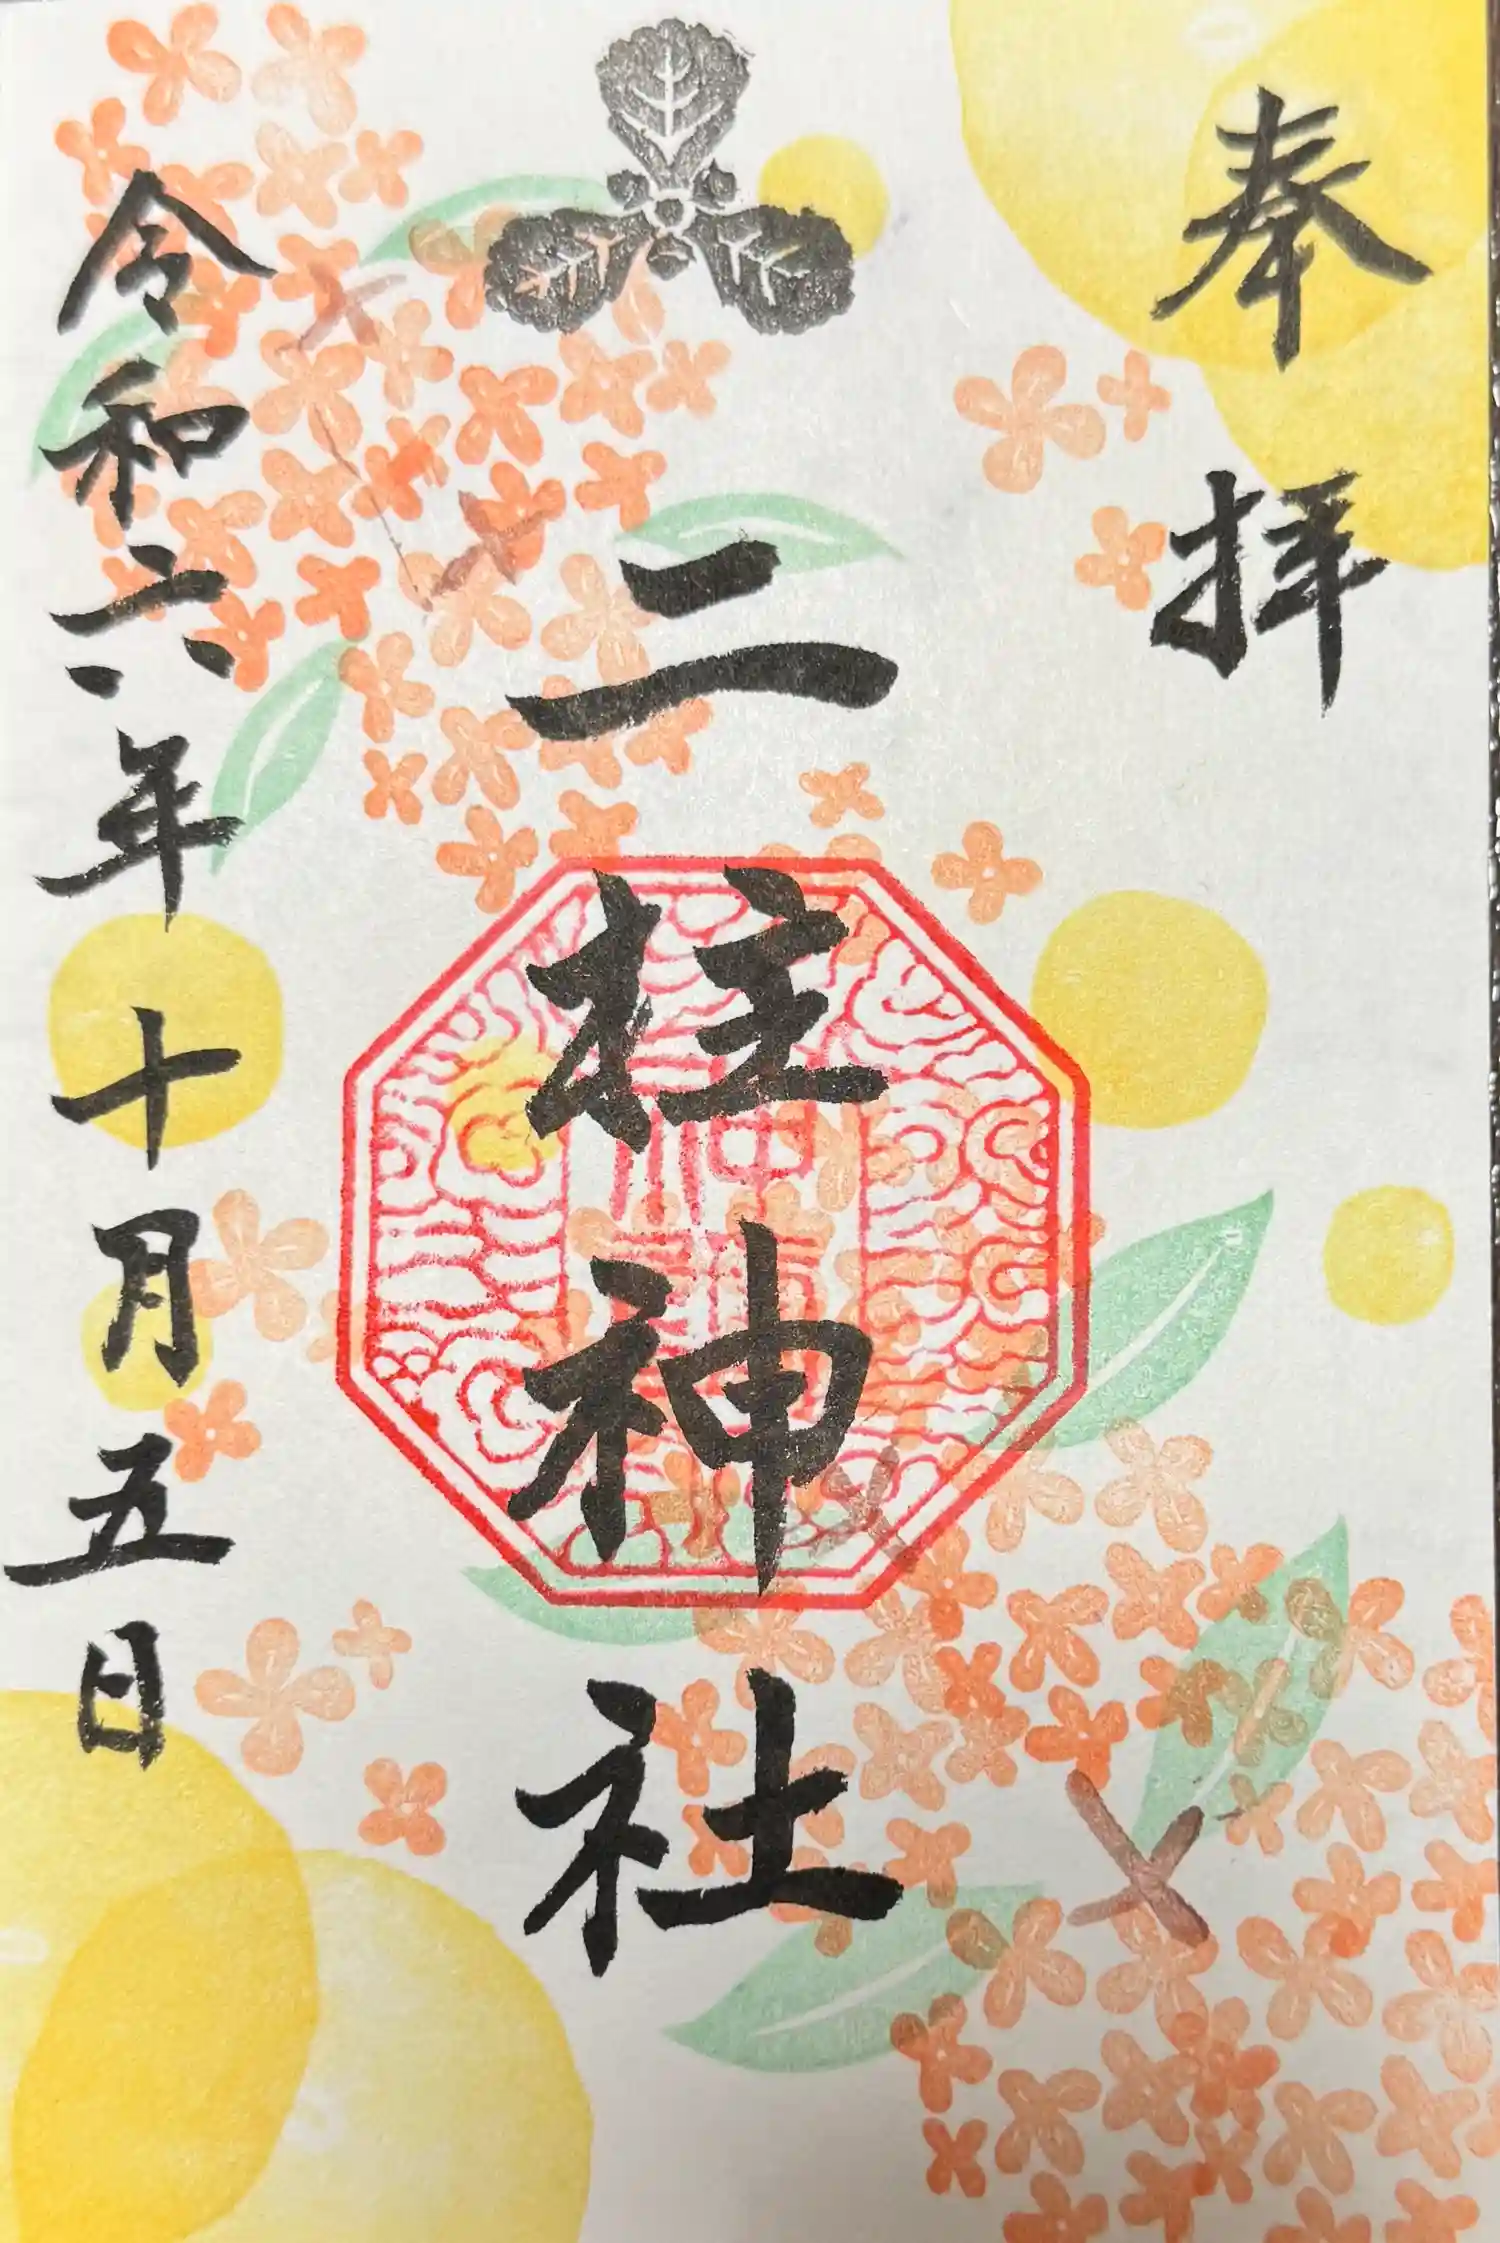 奉拝
二柱神社
令和六年十月五日